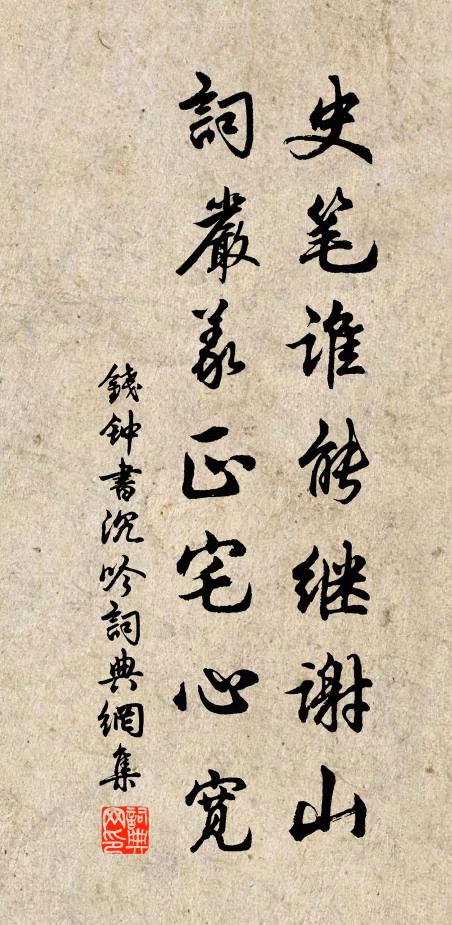 史笔谁能继谢山
词严义正宅心宽
錢钟書沉吟詞典網集
詞典网印